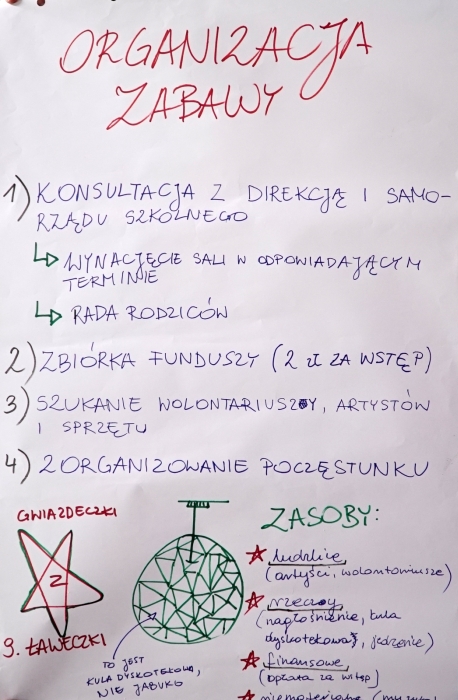 ORGANIZACJA
ZABAWY
1) KONSULTACJA Z DIREKCJĘ I SAMO-
RZĄDU SZKOLNEGO
WYNAJĘCIE SALI W ODPOWIADAJĄCYM
TERMINIE
RADA RODZICÓW
2) ZBIÓRKA FUNDUSZY (2 zł ZA WSTĘP)
3) SZUKANIE WOLONTARIUSZY, ARTYSTÓW
I SPRZĘTU
4) ZORGANIZOWANIE POCZĘSTUNKU
GWIAZDECZKI
Z
9. ŁAWECZKI
TO JEST
KULA DYSKOTEKOWA,
NIE JABŁKO
ZASOBY:
ludzkie
(artyści, wolontariusze)
rzeczy
(nagłośnienie, kula
dyskotekowa, jedzenie)
finansowe
(opłata za wstęp)
niematerialne